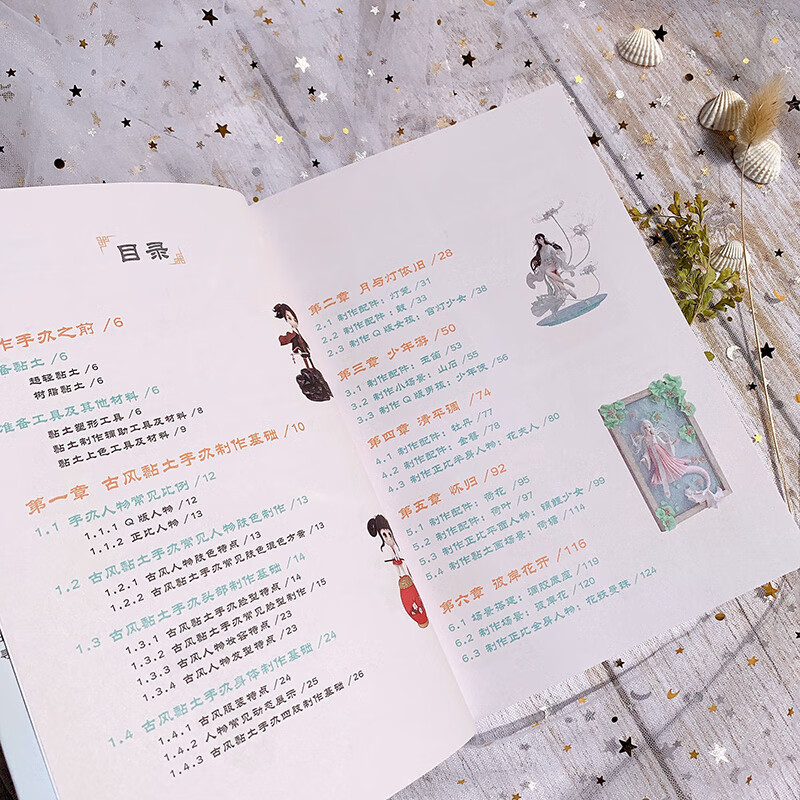 目录
作手办之前 /6
备黏土 /6
超轻黏土 /6
树脂黏土 /6
准备工具及其他材料 /6
黏土塑形工具 /6
黏土制作辅助工具及材料 /8
黏土上色工具及材料 /9
第一章 古风黏土手办制作基础 /10
1.1 手办人物常见比例 /12
1.1.1 Q版人物 /12
1.1.2 正比人物 /13
1.2 古风黏土手办常见人物肤色制作 /13
1.2.1 古风人物肤色特点 /13
1.2.2 古风黏土手办常见肤色混色方案 /13
1.3 古风黏土手办头部制作基础 /14
1.3.1 古风黏土手办脸型特点 /14
1.3.2 古风黏土手办常见脸型制作 /15
1.3.3 古风人物妆容特点 /23
1.3.4 古风人物发型特点 /23
1.4 古风黏土手办身体制作基础 /24
1.4.1 古风服装特点 /24
1.4.2 人物常见动态展示 /25
1.4.3 古风黏土手办四肢制作基础 /26
第二章 月与灯依旧 /28
2.1 制作配件：灯笼 /31
2.2 制作配件：鼓 /33
2.3 制作Q版女孩：宫灯少女 /38
第三章 少年游 /50
3.1 制作配件：玉笛 /53
3.2 制作小场景：山石 /55
3.3 制作Q版男孩：少年侠 /56
第四章 清平调 /74
4.1 制作配件：牡丹 /77
4.2 制作配件：金簪 /78
4.3 制作正比半身人物：花美人 /80
第五章 怀归 /92
5.1 制作配件：荷花 /95
5.2 制作配件：荷叶 /97
5.3 制作正比平面人物：锦鲤少女 /99
5.4 制作黏土画场景：荷塘 /114
第六章 彼岸花开 /116
6.1 场景搭建：滴胶底座 /119
6.2 制作场景：彼岸花 /120
6.3 制作正比全身人物：花妖曼珠 /124